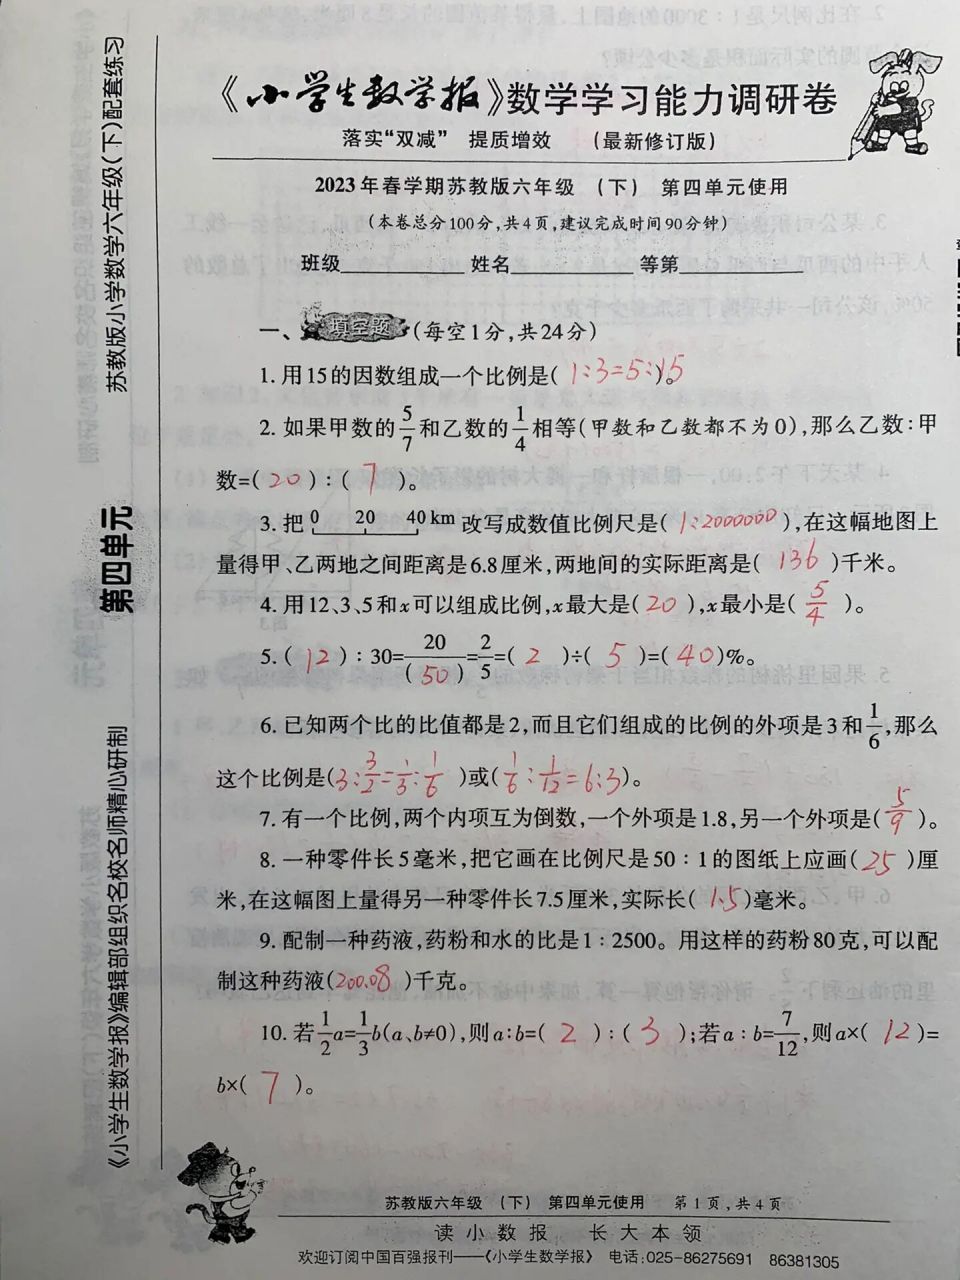 《小学生数学报》数学学习能力调研卷
落实“双减” 提质增效 (最新修订版)
2023年春学期苏教版六年级 (下) 第四单元使用
(本卷总分100分,共4页,建议完成时间90分钟)
班级 姓名 等第
一、填空题(每空1分,共24分)
1.用15的因数组成一个比例是( 1:3=5:15 )。
2.如果甲数的5/7和乙数的1/4相等(甲数和乙数都不为0),那么乙数:甲
数=( 20 ):( 7 )。
3.把 0 20 40 km 改写成数值比例尺是( 1:2000000 ),在这幅地图上
量得甲、乙两地之间距离是6.8厘米,两地间的实际距离是( 136 )千米。
4.用12、3、5和x可以组成比例,x最大是( 20 ),x最小是( 5/4 )。
5.( 12 ):30=20/( 50 )=2/5=( 2 )÷( 5 )=( 40 )%。
6.已知两个比的比值都是2,而且它们组成的比例的外项是3和1/6,那么
这个比例是( 3:3/2=1/3:1/6 )或( 1/6:1/12=6:3 )。
7.有一个比例,两个内项互为倒数,一个外项是1.8,另一个外项是( 5/9 )。
8.一种零件长5毫米,把它画在比例尺是50:1的图纸上应画( 25 )厘
米,在这幅图上量得另一种零件长7.5厘米,实际长( 1.5 )毫米。
9.配制一种药液,药粉和水的比是1:2500。用这样的药粉80克,可以配
制这种药液( 200.08 )千克。
10.若1/2a=1/3b(a、b≠0),则a:b=( 2 ):( 3 );若a:b=7/12,则a×( 12 )=
b×( 7 )。
苏教版六年级 (下) 第四单元使用 第1页,共4页
读小数报 长大本领
欢迎订阅中国百强报刊——《小学生数学报》 电话:025-86275691 86381305
苏教版小学数学六年级(下)配套练习
第四单元
《小学生数学报》编辑部组织名校名师精心研制